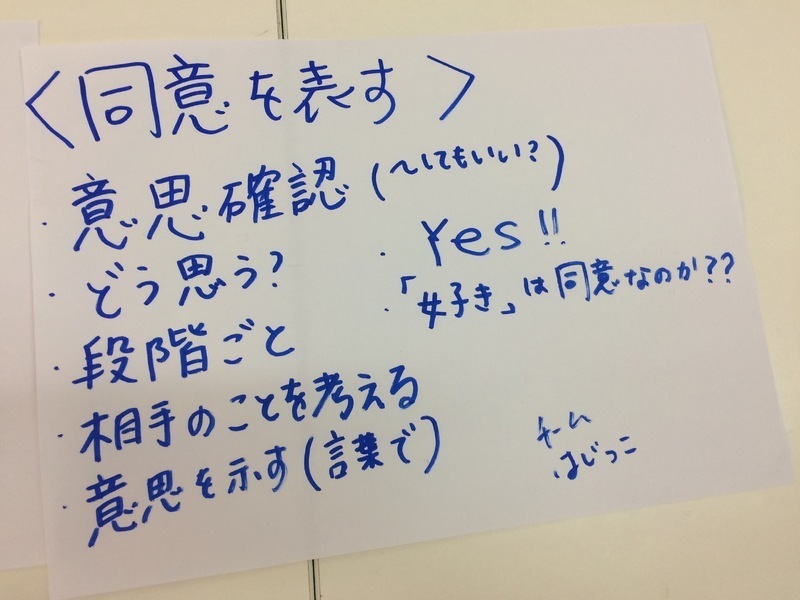 〈同意を表す〉
・意思確認(〜してもいい?)
・どう思う?
・段階ごと
・相手のことを考える
・意思を示す(言葉で)
・Yes!!
・「好き」は同意なのか??
チーム
はじっこ